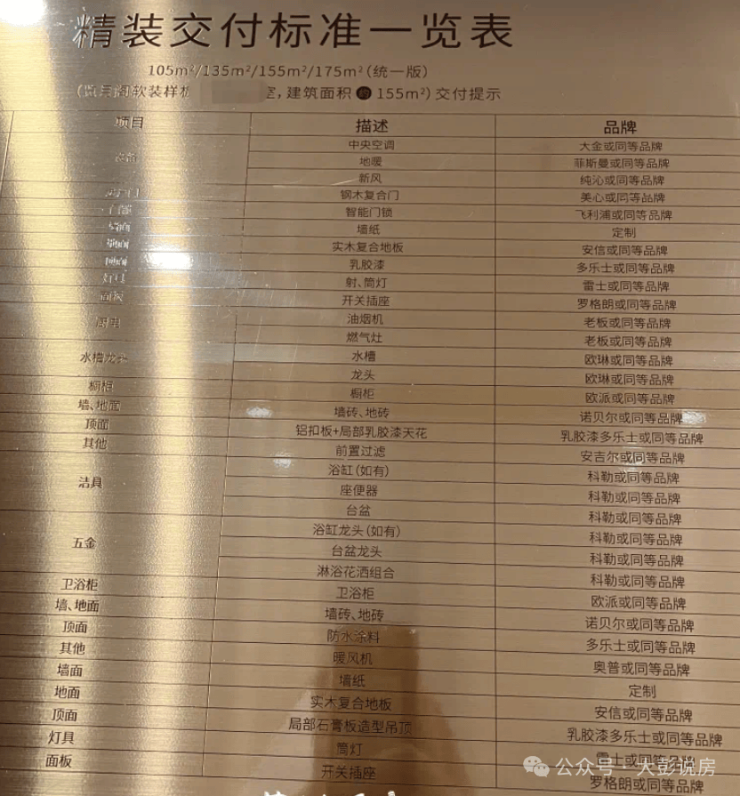 精装交付标准一览表
105m²/135m²/155m²/175m²(统一版)
软装样板 室,建筑面积约155m²)交付提示
项目 描述 品牌
中央空调 大金或同等品牌
地暖 菲斯曼或同等品牌
新风 纯沁或同等品牌
钢木复合门 美心或同等品牌
智能门锁 飞利浦或同等品牌
墙面 墙纸 定制
地面 实木复合地板 安信或同等品牌
顶面 乳胶漆 多乐士或同等品牌
灯具 射、筒灯 雷士或同等品牌
面板 开关插座 罗格朗或同等品牌
厨具 油烟机 老板或同等品牌
燃气灶 老板或同等品牌
水槽龙头 水槽 欧琳或同等品牌
龙头 欧琳或同等品牌
橱柜 橱柜 欧派或同等品牌
墙、地面 墙砖、地砖 诺贝尔或同等品牌
顶面 铝扣板+局部乳胶漆天花 乳胶漆多乐士或同等品牌
其他 前置过滤 安吉尔或同等品牌
洁具 浴缸(如有) 科勒或同等品牌
座便器 科勒或同等品牌
台盆 科勒或同等品牌
五金 浴缸龙头(如有) 科勒或同等品牌
台盆龙头 科勒或同等品牌
淋浴花洒组合 科勒或同等品牌
卫浴柜 卫浴柜 欧派或同等品牌
墙、地面 墙砖、地砖 诺贝尔或同等品牌
顶面 防水涂料 多乐士或同等品牌
其他 暖风机 奥普或同等品牌
墙面 墙纸 定制
地面 实木复合地板 安信或同等品牌
顶面 局部石膏板造型吊顶 乳胶漆多乐士或同等品牌
灯具 筒灯 雷士或同等品牌
面板 开关插座 罗格朗或同等品牌
公众号 · 大彭说房